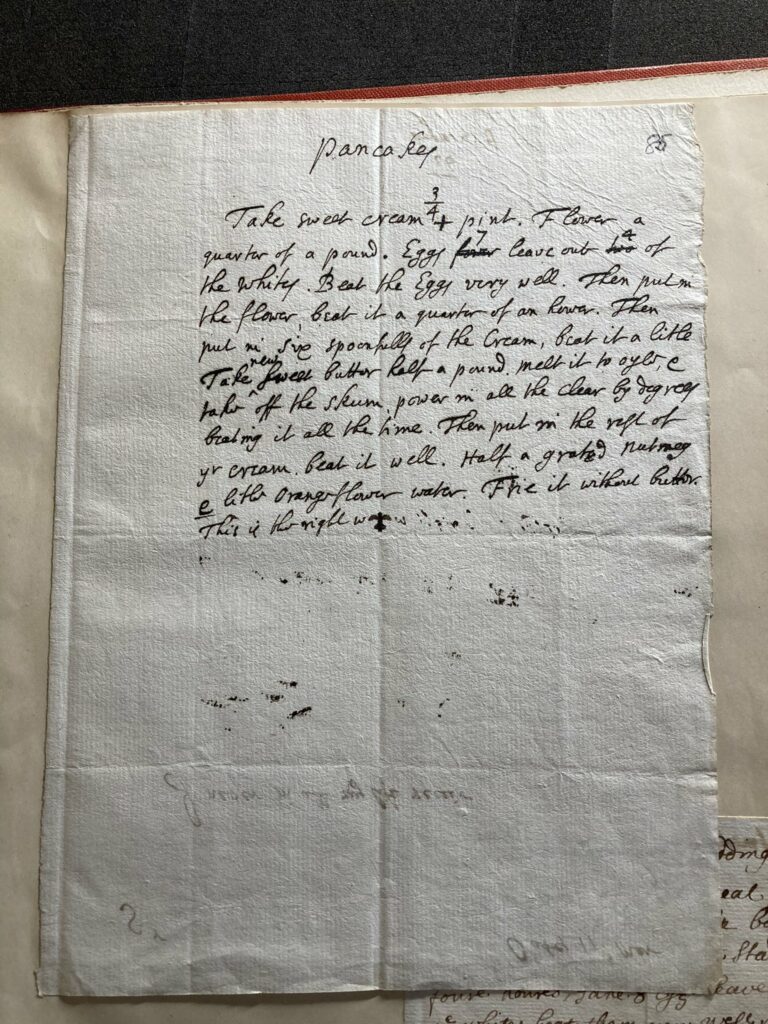 pancakes
85
Take sweet cream 3/4 + pint. Flower a
quarter of a pound. Eggs fower 7 leave out two 4 of
the whites. Beat the Eggs very well. Then put in
the flower, beat it a quarter of an hower. Then
put in six spoonfulls of the Cream, beat it a litle
Take new sweet butter half a pound, melt it to oyle, e
take off the skum, power in all the clear by degrees
beating it all the time. Then put in the rest of
yr cream. beat it well. Half a grated nutmeg
e litle Orangeflower water. Frie it without butter.
This is the right way
dding
eal
Sta
foure houres Take 8 Egg leave
whites beat them well